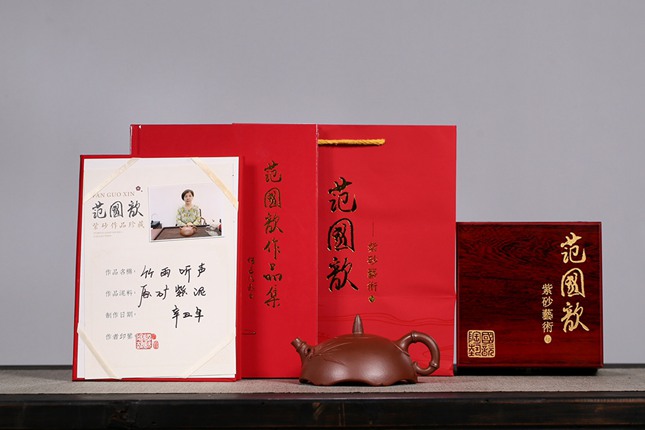 FAN GUO XIN
范國歆
紫砂作品珍藏
作品名稱：竹雨听声
作品泥料：原矿紫泥
制作日期：辛丑年
作者印鑒：
范國歆作品集
范國歆
紫砂藝術
范國歆
紫砂藝術